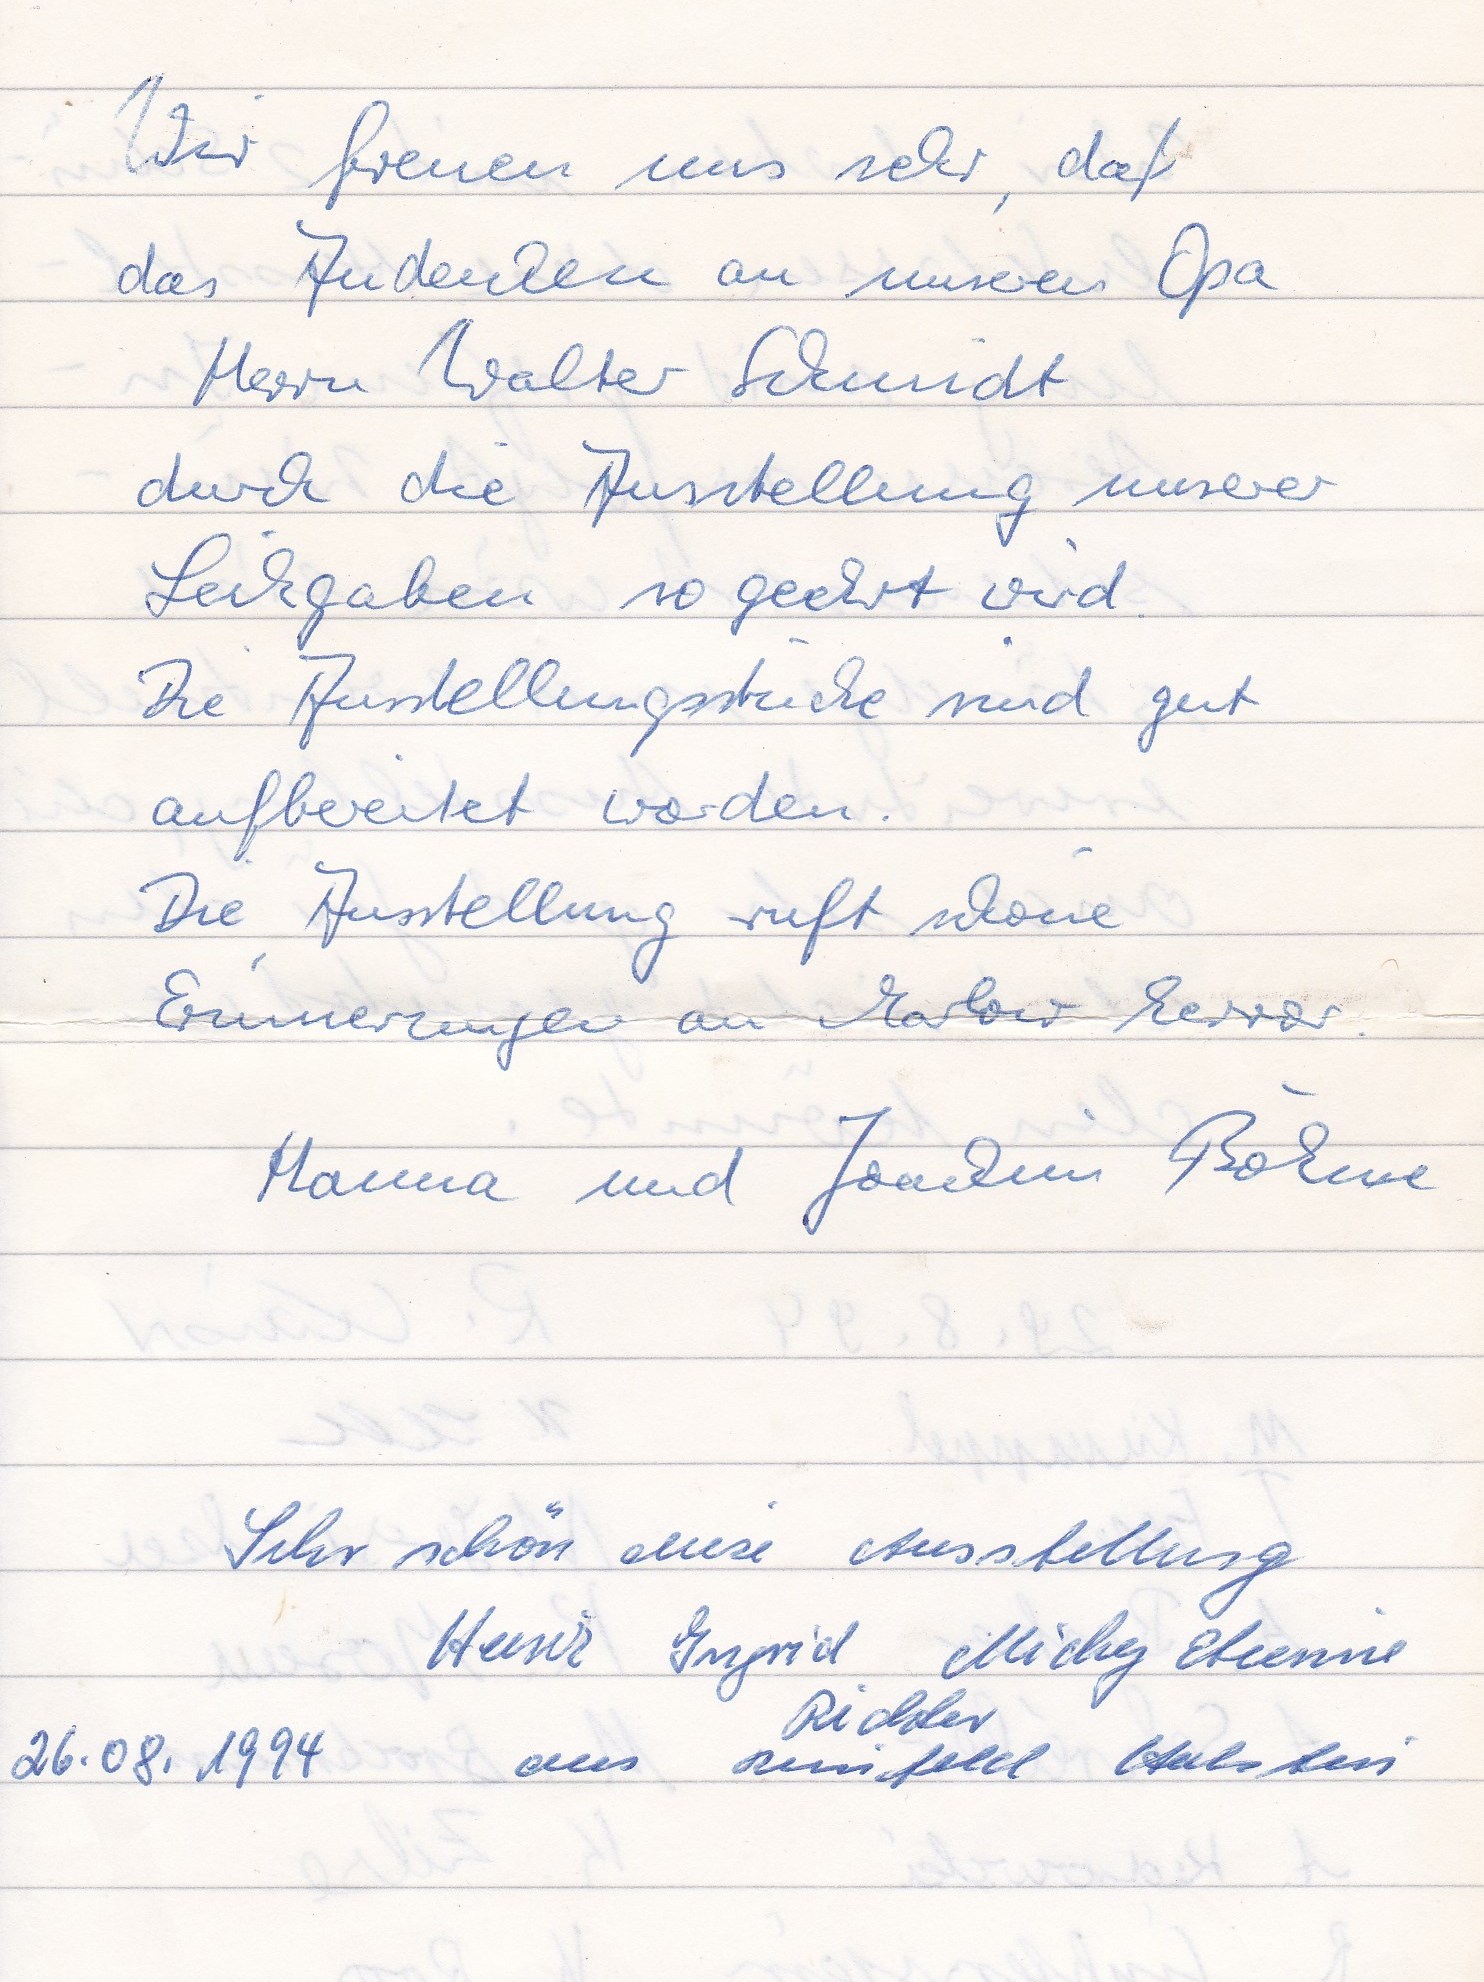 Wir freuen uns sehr, daß
das Andenken an unseren Opa
Herrn Walter Schmidt
durch die Ausstellung unserer
Leihgaben so geehrt wird.
Die Ausstellungsstücke sind gut
aufbereitet worden.
Die Ausstellung ruft schöne
Erinnerungen an Marlow hervor.
Hanna und Joachim Böhme
Sehr schön diese Ausstellung
Ingrid Micky
Richter
26.08.1994 aus Reinfeld Holstein